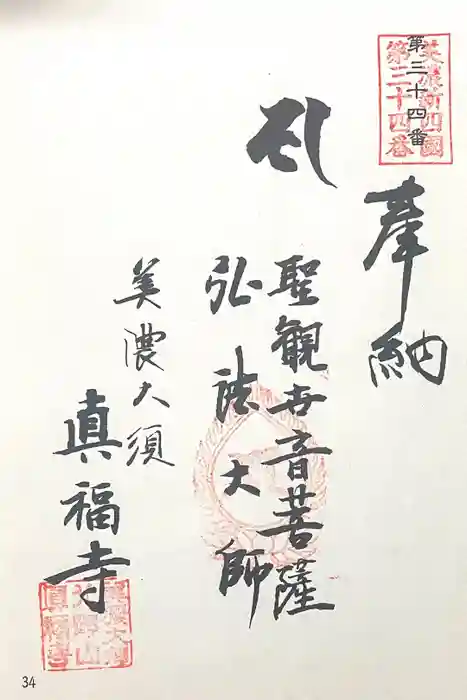 第三十四番
美濃新四國
第三十四番
奉納
聖観世音菩薩
弘法大師
美濃大須
真福寺
34